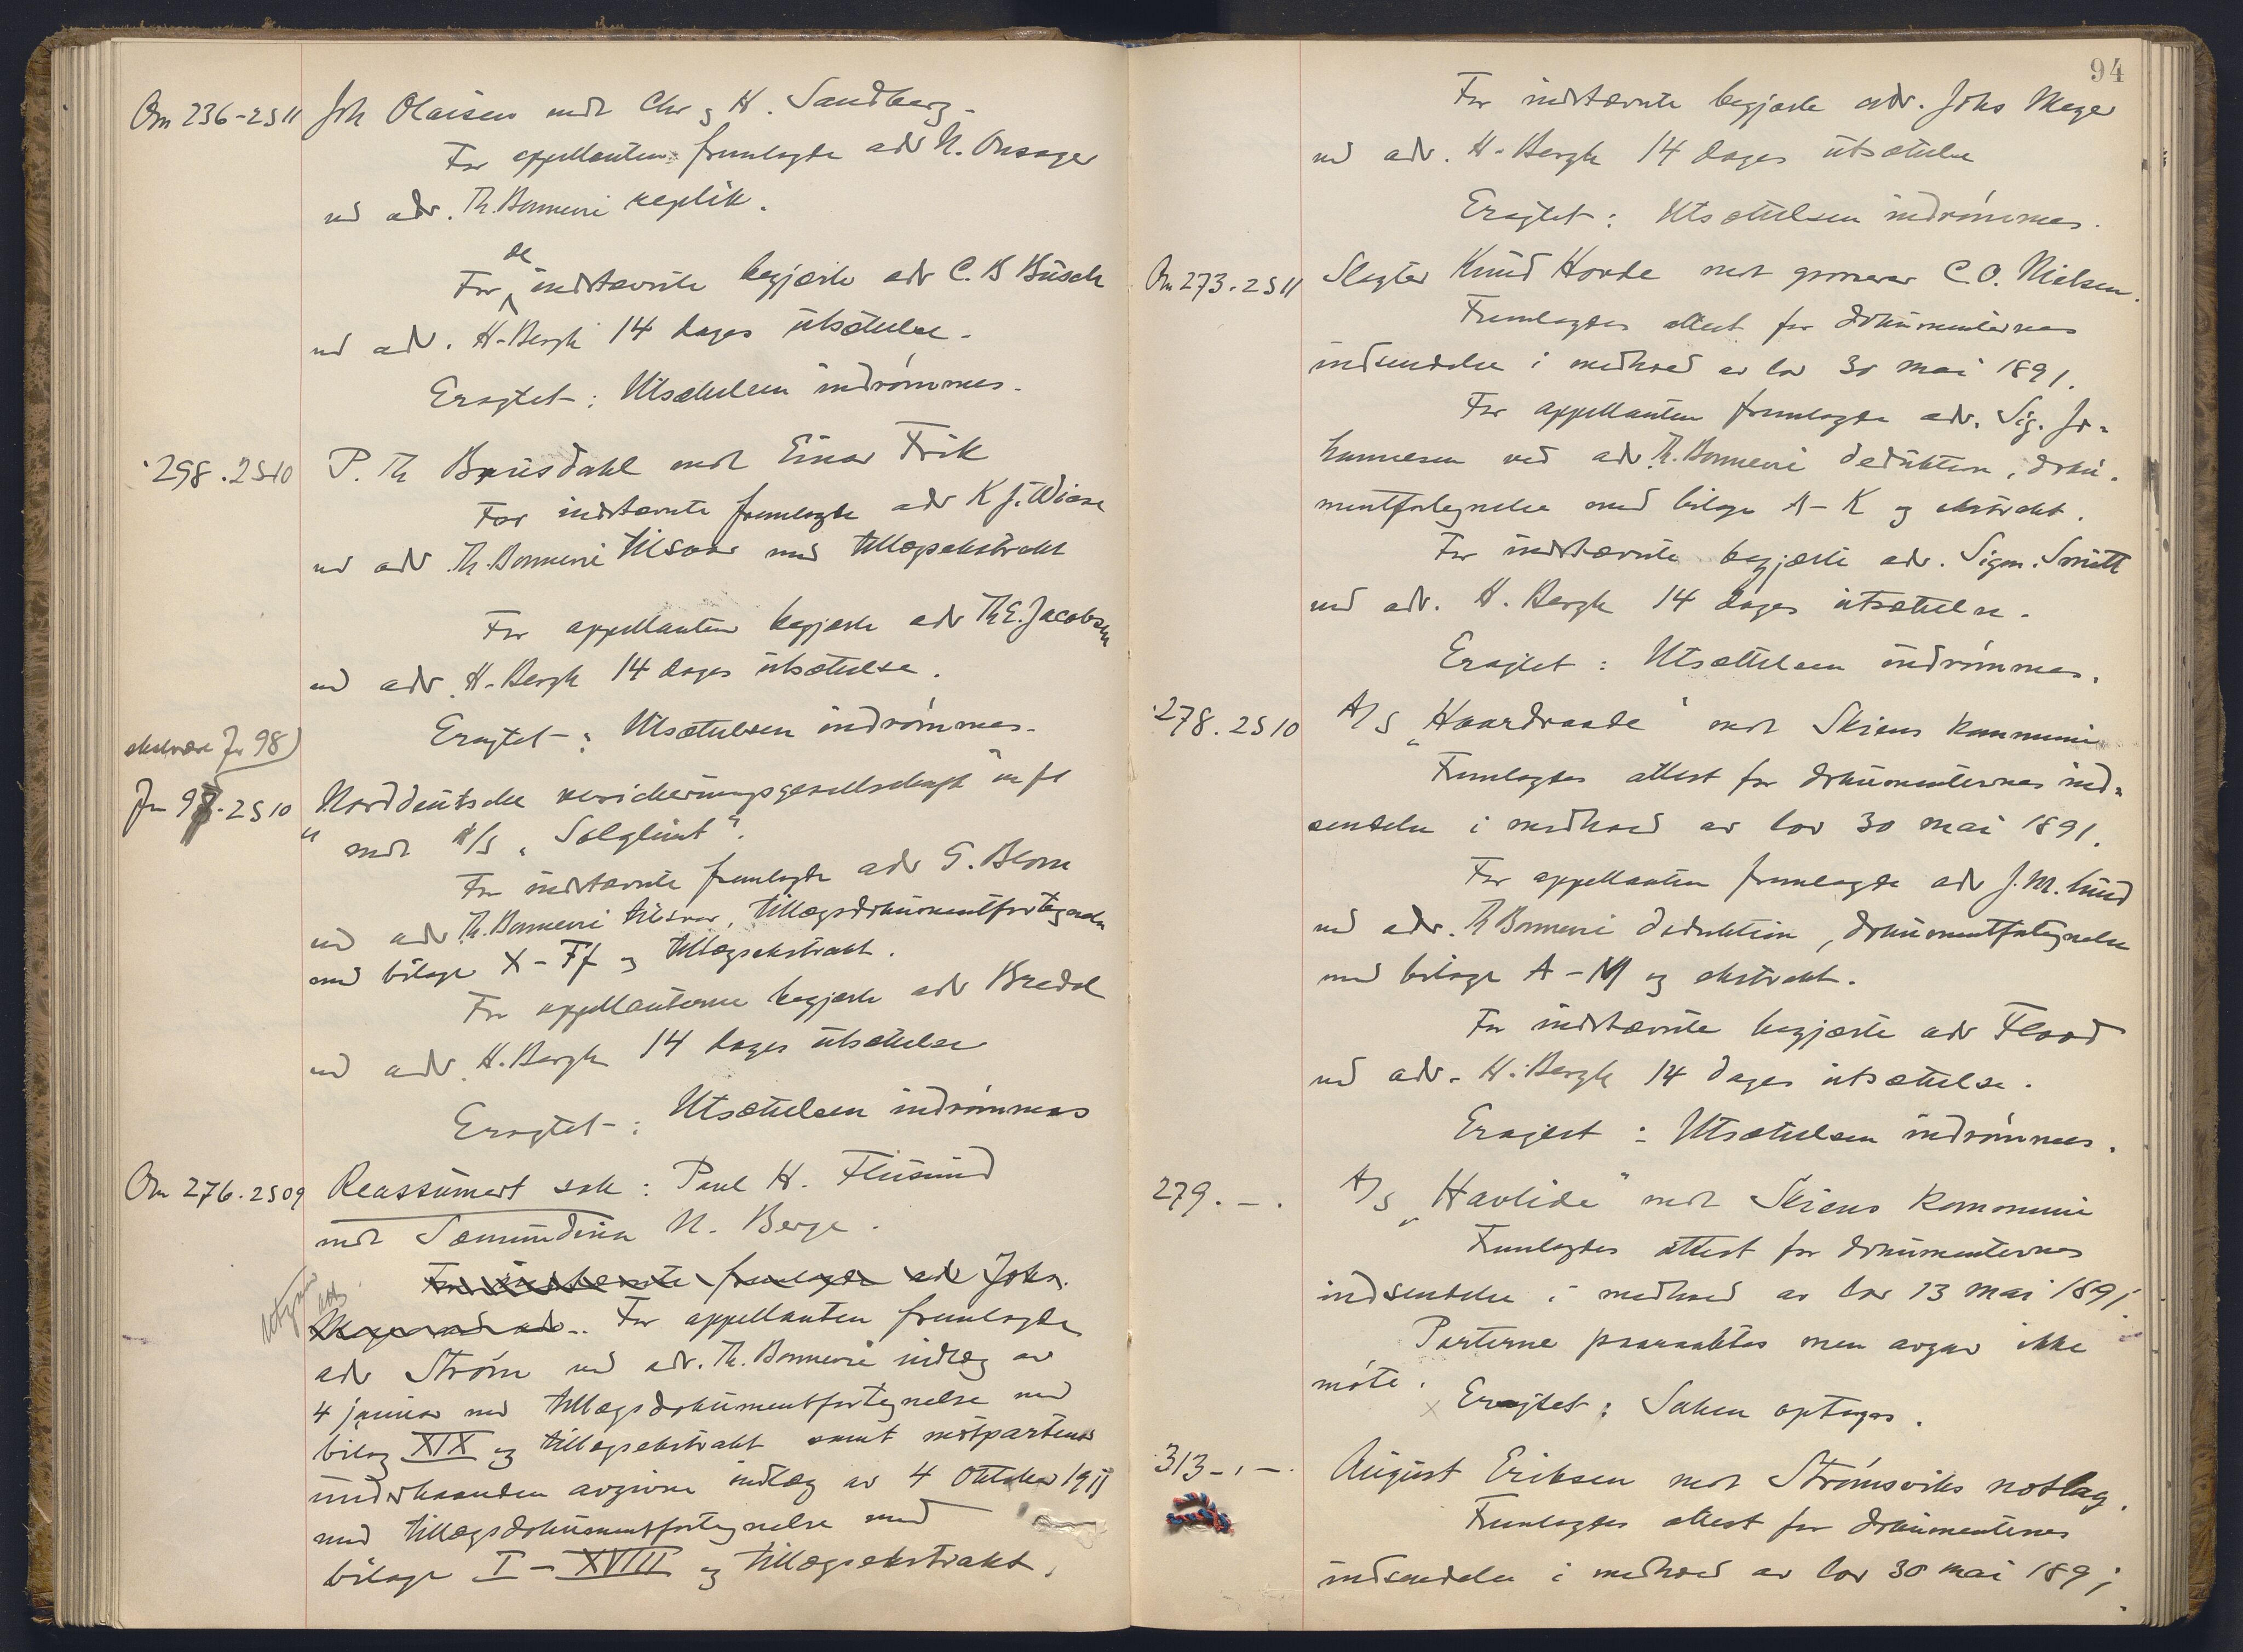 Om 236-2511 Joh Olaisen mot Chr og H. Sandberg.
For appellanten fremlagde adv N. Onsager
ved adv. Th. Bonnevie replik.
de
For indstevnte begjærte adv C. B Büsch
ved adv. H. Bergh 14 dages utsættelse.
Eragtet: Utsættelsen indrømmes.
298.2510 P. Th Brusdahl mot Einar Frik
For indstevnte fremlagde adv K J. Wiese
ved adv Th. Bonnevie tilsvar med tillægsekstrakt
For appellanten begjærte adv Th E. Jacobsen
ved adv. H. Bergh 14 dages utsættelse.
Eragtet: Utsættelsen indrømmes.
Jr 98)
Jr 98.2510 Norddeutsche versicherungsgesellschaft m fl
mot A/S "Solglimt".
For indstevnte fremlagde adv G. Blom
ved adv Th. Bonnevie tilsvar, tillægsdokumentfortegnelse
med bilage X - Ff og tillægsekstrakt.
For appellanterne begjærte adv Bredal
ved adv. H. Bergh 14 dages utsættelse
Eragtet: Utsættelsen indrømmes
Om 276.2509 Reassumert sak: Paul H. Flusund
mot Sæmundina N. Berge.
For indstevnte fremlagde adv Johs.
Meyer ved adv.. For appellanten fremlagde
adv Strøm ved adv. Th. Bonnevie indlæg av
4 januar med tillægsdokumentfortegnelse med
bilag XIX og tillægsekstrakt samt motpartens
underhaanden avgivne indlæg av 4 oktober 1911
med tillægsdokumentfortegnelse med
bilage I - XVIII og tillægsekstrakt.
94
For indstævnte begjærte adv. Johs Meyer
ved adv. H. Bergh 14 dages utsættelse
Eragtet: Utsættelsen indrømmes.
Om 273.2511 Slagter Knud Hovde mot grosserer C. O. Nielsen.
Fremlagdes attest for dokumenternes
indsendelse i medhold av lov 30 mai 1891.
For appellanten fremlagde adv. Sig. Jo-
hannesen ved adv. Th. Bonnevie deduktion, doku-
mentfortegnelse med bilage A - K og ekstrakt.
For indstævnte begjærte adv. Sigm. Smitt
ved adv. H. Bergh 14 dages utsættelse.
Eragtet: Utsættelsen indrømmes.
278.2510 A/S "Haardraade" mot Skiens kommune
Fremlagdes attest for dokumenternes ind-
sendelse i medhold av lov 30 mai 1891.
For appellanten fremlagde adv J. M. Lund
ved adv. Th Bonnevie deduktion, dokumentfortegnelse
med bilage A - M og ekstrakt.
For indstævnte begjærte adv Flood
ved adv. H. Bergh 14 dages utsættelse.
Eragtet: Utsættelsen indrømmes.
279. - . A/S "Havlide" mot Skiens kommune
Fremlagdes attest for dokumenternes
indsendelse i medhold av lov 13 mai 1891.
Parterne paaraabtes men avgav ikke
møte.
x Eragtet: Saken optages.
313 - , - . August Eriksen mot Strømsviks notlag.
Fremlagdes attest for dokumenternes
indsendelse i medhold av lov 30 mai 1891;